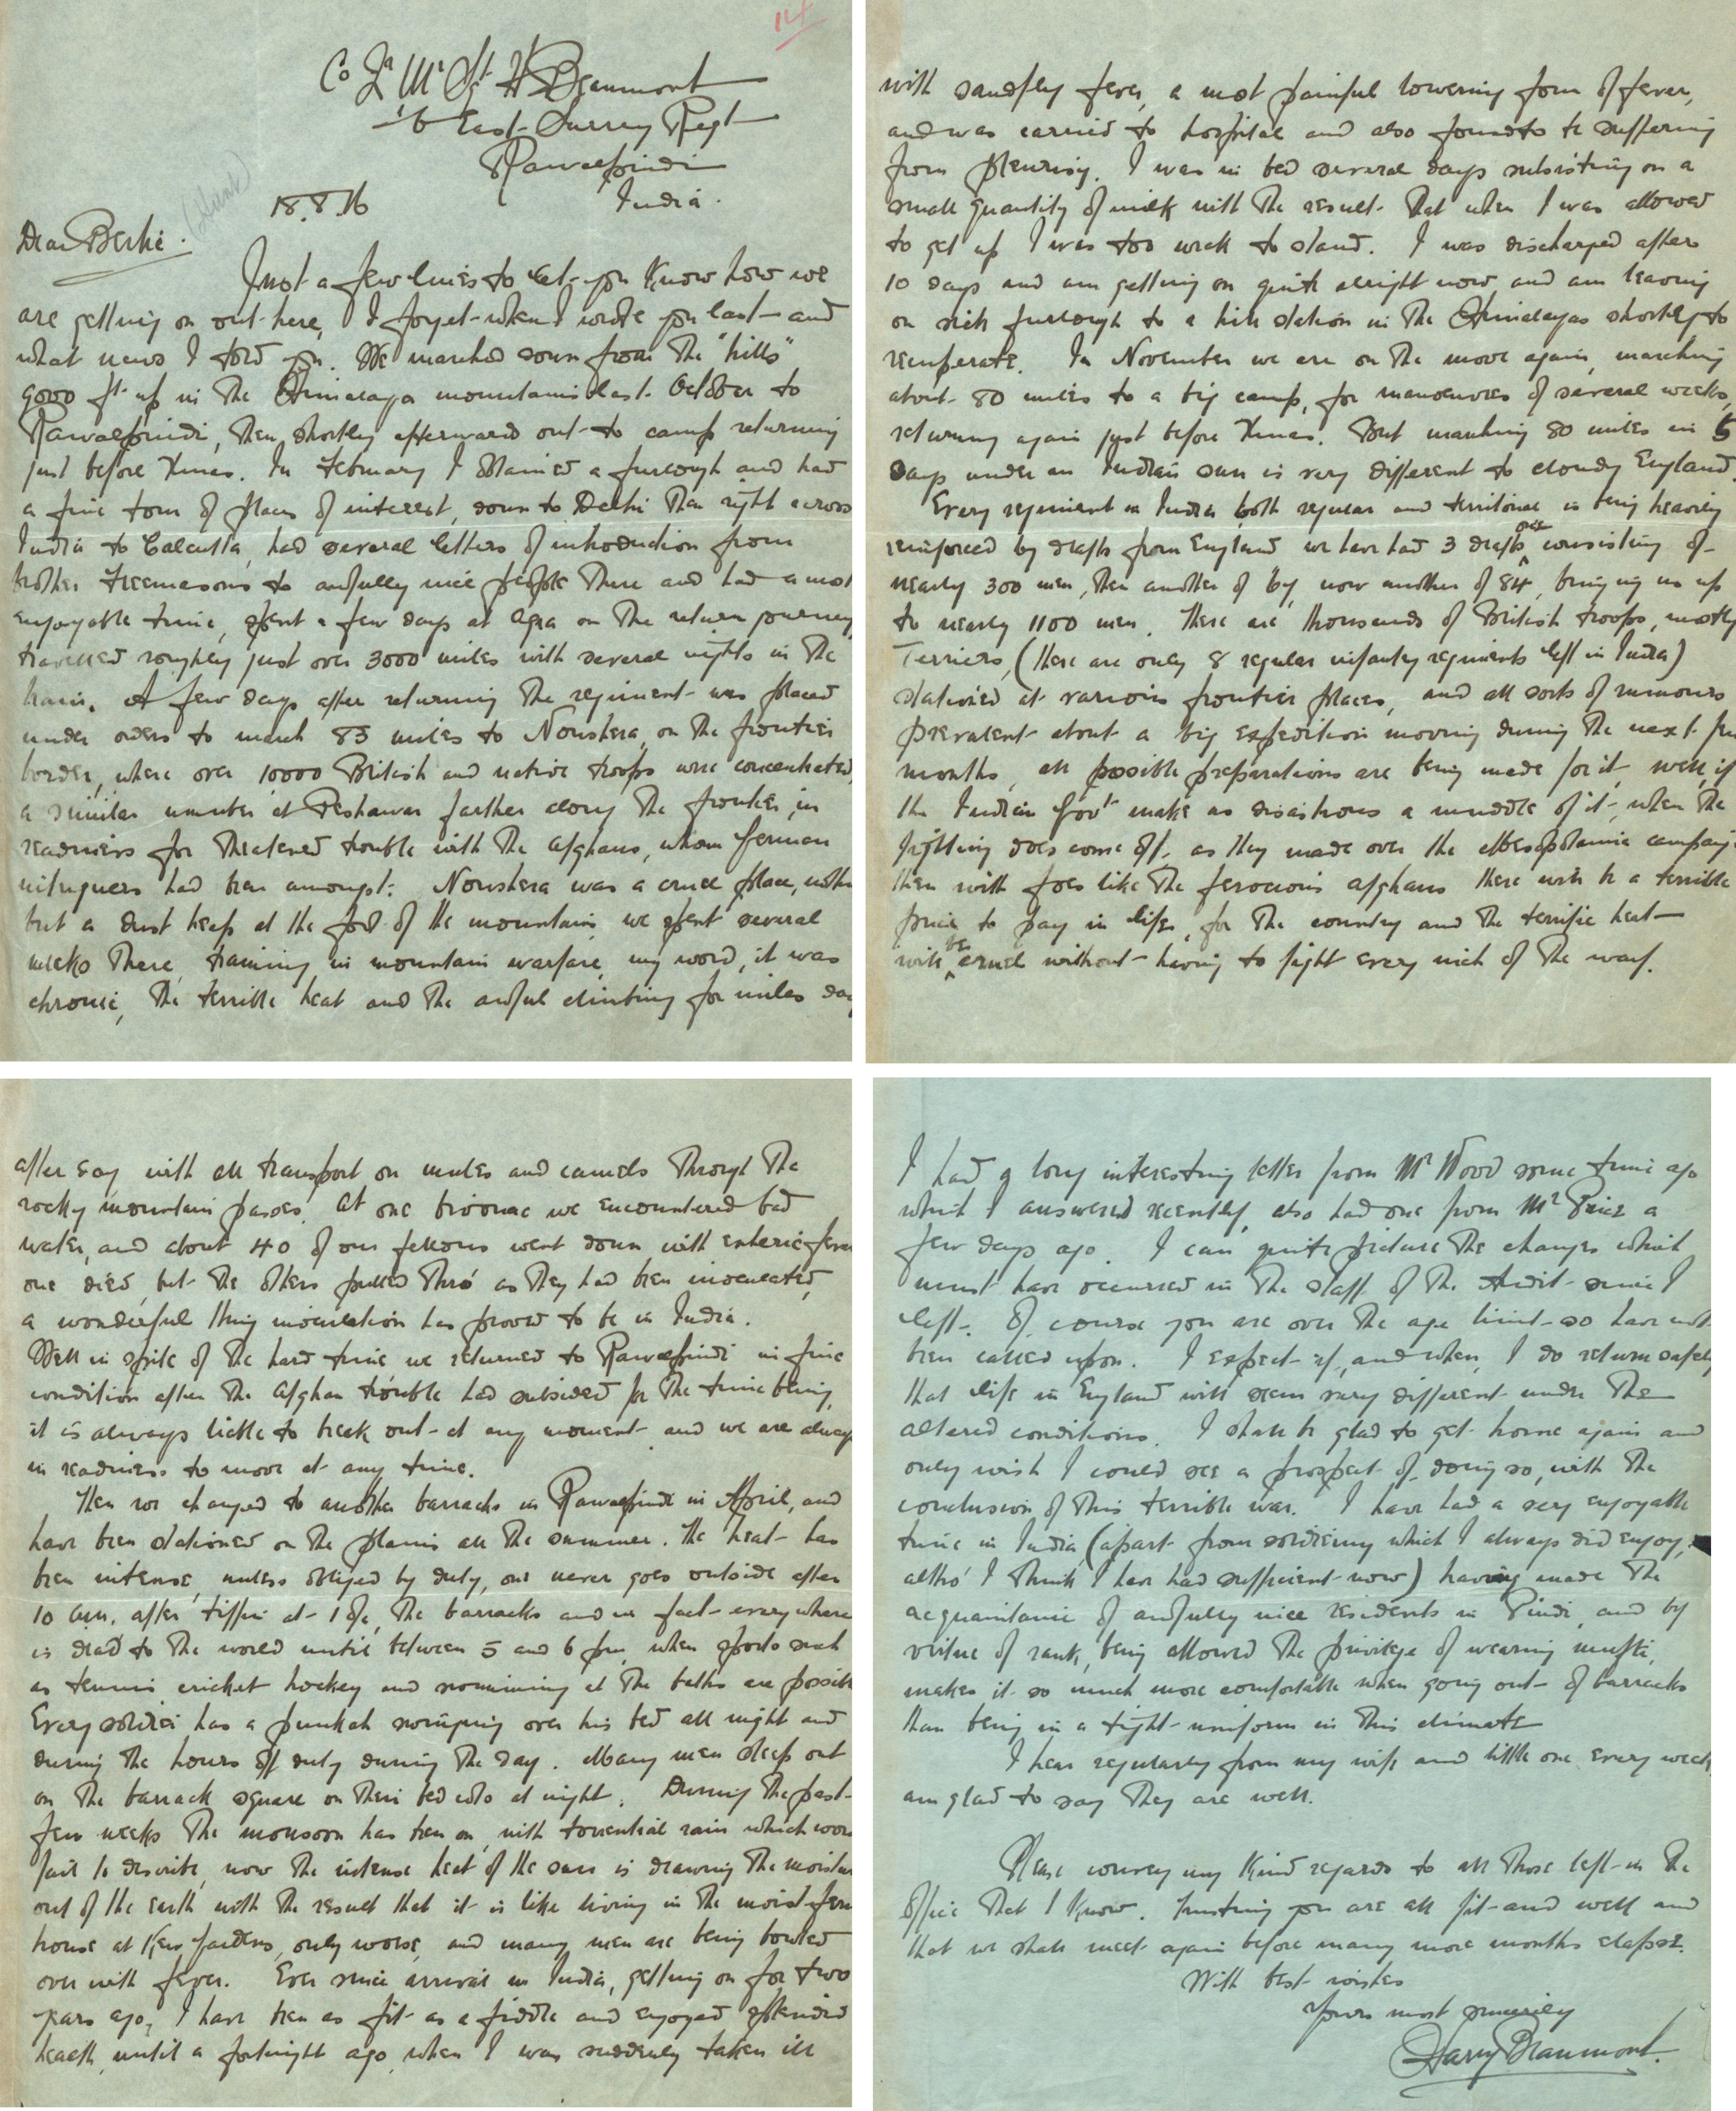 14
Co Qr Mr Sgt H Beaumont
1/6 East Surrey Regt
Rawalpindi
India.
18.8.16
Dear Bertie.
Just a few lines to let you know how we
are getting on out here, I forget when I wrote you last and
what news I told you. We marched down from the "hills"
9000 ft up in the Himalaya mountains last October to
Rawalpindi, then shortly afterward out to camp returning
just before Xmas. In February I obtained a furlough and had
a fine tour of places of interest, down to Delhi then right across
India to Calcutta, had several letters of introduction from
brother Freemasons to awfully nice people there and had a most
enjoyable time, spent a few days at Agra on the return journey
travelled roughly just over 3000 miles with several nights in the
train. A few days after returning the regiment was placed
under orders to march 83 miles to Nowshera, on the frontier
border, where over 10000 British and native troops were concentrated,
a similar number at Peshawar farther along the frontier, in
readiness for threatened trouble with the Afghans, whom German
intriguers had been amongst. Nowshera was a cruel place, nothing
but a dust heap at the foot of the mountains, we spent several
weeks there, training in mountain warfare, my word, it was
chronic, the terrible heat and the awful climbing for miles day
after day with all transport on mules and camels through the
rocky mountain passes. At one bivouac we encountered bad
water, and about 40 of our fellows went down with enteric fever
one died, but the others pulled thro' as they had been inoculated,
a wonderful thing inoculation has proved to be in India.
Well in spite of the hard time we returned to Rawalpindi in fine
condition after the Afghan trouble had subsided for the time being,
it is always liable to break out at any moment and we are always
in readiness to move at any time.
Then we changed to another barracks in Rawalpindi in April, and
have been stationed on the plains all the summer. The heat has
been intense, unless obliged by duty, one never goes outside after
10 am. after tiffin at 1 o/c, the barracks and in fact everywhere
is dead to the world until between 5 and 6 pm, when sports such
as tennis cricket hockey and swimming at the baths are possible
Every soldier has a punkah swinging over his bed all night and
during the hours off duty during the day. Many men sleep out
on the barrack square on their bed cots at night. During the past
few weeks the monsoon has been on, with torrential rain which words
fail to describe, now the intense heat of the sun is drawing the moisture
out of the earth with the result that it is like living in the moist fern
house at Kew Gardens, only worse, and many men are being bowled
over with fever. Ever since arrival in India, getting on for two
years ago, I have been as fit as a fiddle and enjoyed splendid
health until a fortnight ago, when I was suddenly taken ill
with sandfly fever, a most painful lowering form of fever,
and was carried to hospital and also found to be suffering
from pleurisy. I was in bed several days subsisting on a
small quantity of milk with the result that when I was allowed
to get up I was too weak to stand. I was discharged after
10 days and am getting on quite alright now, and am leaving
on sick furlough to a hill station in the Himalayas shortly to
recuperate. In November we are on the move again, marching
about 80 miles to a big camp, for manoeuvres of several weeks,
returning again just before Xmas. But marching 80 miles in 5
days under an Indian sun is very different to cloudy England.
Every regiment in India both regular and territorial is being heavily
reinforced by drafts from England we have had 3 drafts one consisting of
nearly 300 men, then another of 64, now another of 84, bringing us up
to nearly 1100 men. There are thousands of British troops, mostly
Terriers, (there are only 8 regular infantry regiments left in India)
stationed at various frontier places, and all sorts of rumours
prevalent about a big expedition moving during the next few
months, all possible preparations are being made for it, well, if
the Indian Govt make as disastrous a muddle of it, when the
fighting does come off, as they made over the Mesopotamia campaign
then with foes like the ferocious Afghans there will be a terrible
price to pay in lifes, for the country and the terrific heat
will be cruel without having to fight every inch of the way.
I had a long interesting letter from Mr Wood some time ago
which I answered recently, also had one from Mr Price a
few days ago. I can quite picture the changes which
must have occurred in the staff of the Audit since I
left. Of course you are over the age limit so have not
been called upon. I expect if, and when, I do return safely
that life in England will seem very different under the
altered conditions. I shall be glad to get home again and
only wish I could see a prospect of doing so, with the
conclusion of this terrible war. I have had a very enjoyable
time in India (apart from soldiering which I always did enjoy,
altho' I think I have had sufficient now) having made the
acquaintance of awfully nice residents in Pindi, and by
virtue of rank, being allowed the privilege of wearing mufti,
makes it so much more comfortable when going out of barracks
than being in a tight uniform in this climate
I hear regularly from my wife and little one every week
am glad to say they are well.
Please convey my kind regards to all those left in the
office that I know. Trusting you are all fit and well and
that we shall meet again before many more months elapse.
With best wishes
Yours most sincerely
Harry Beaumont.